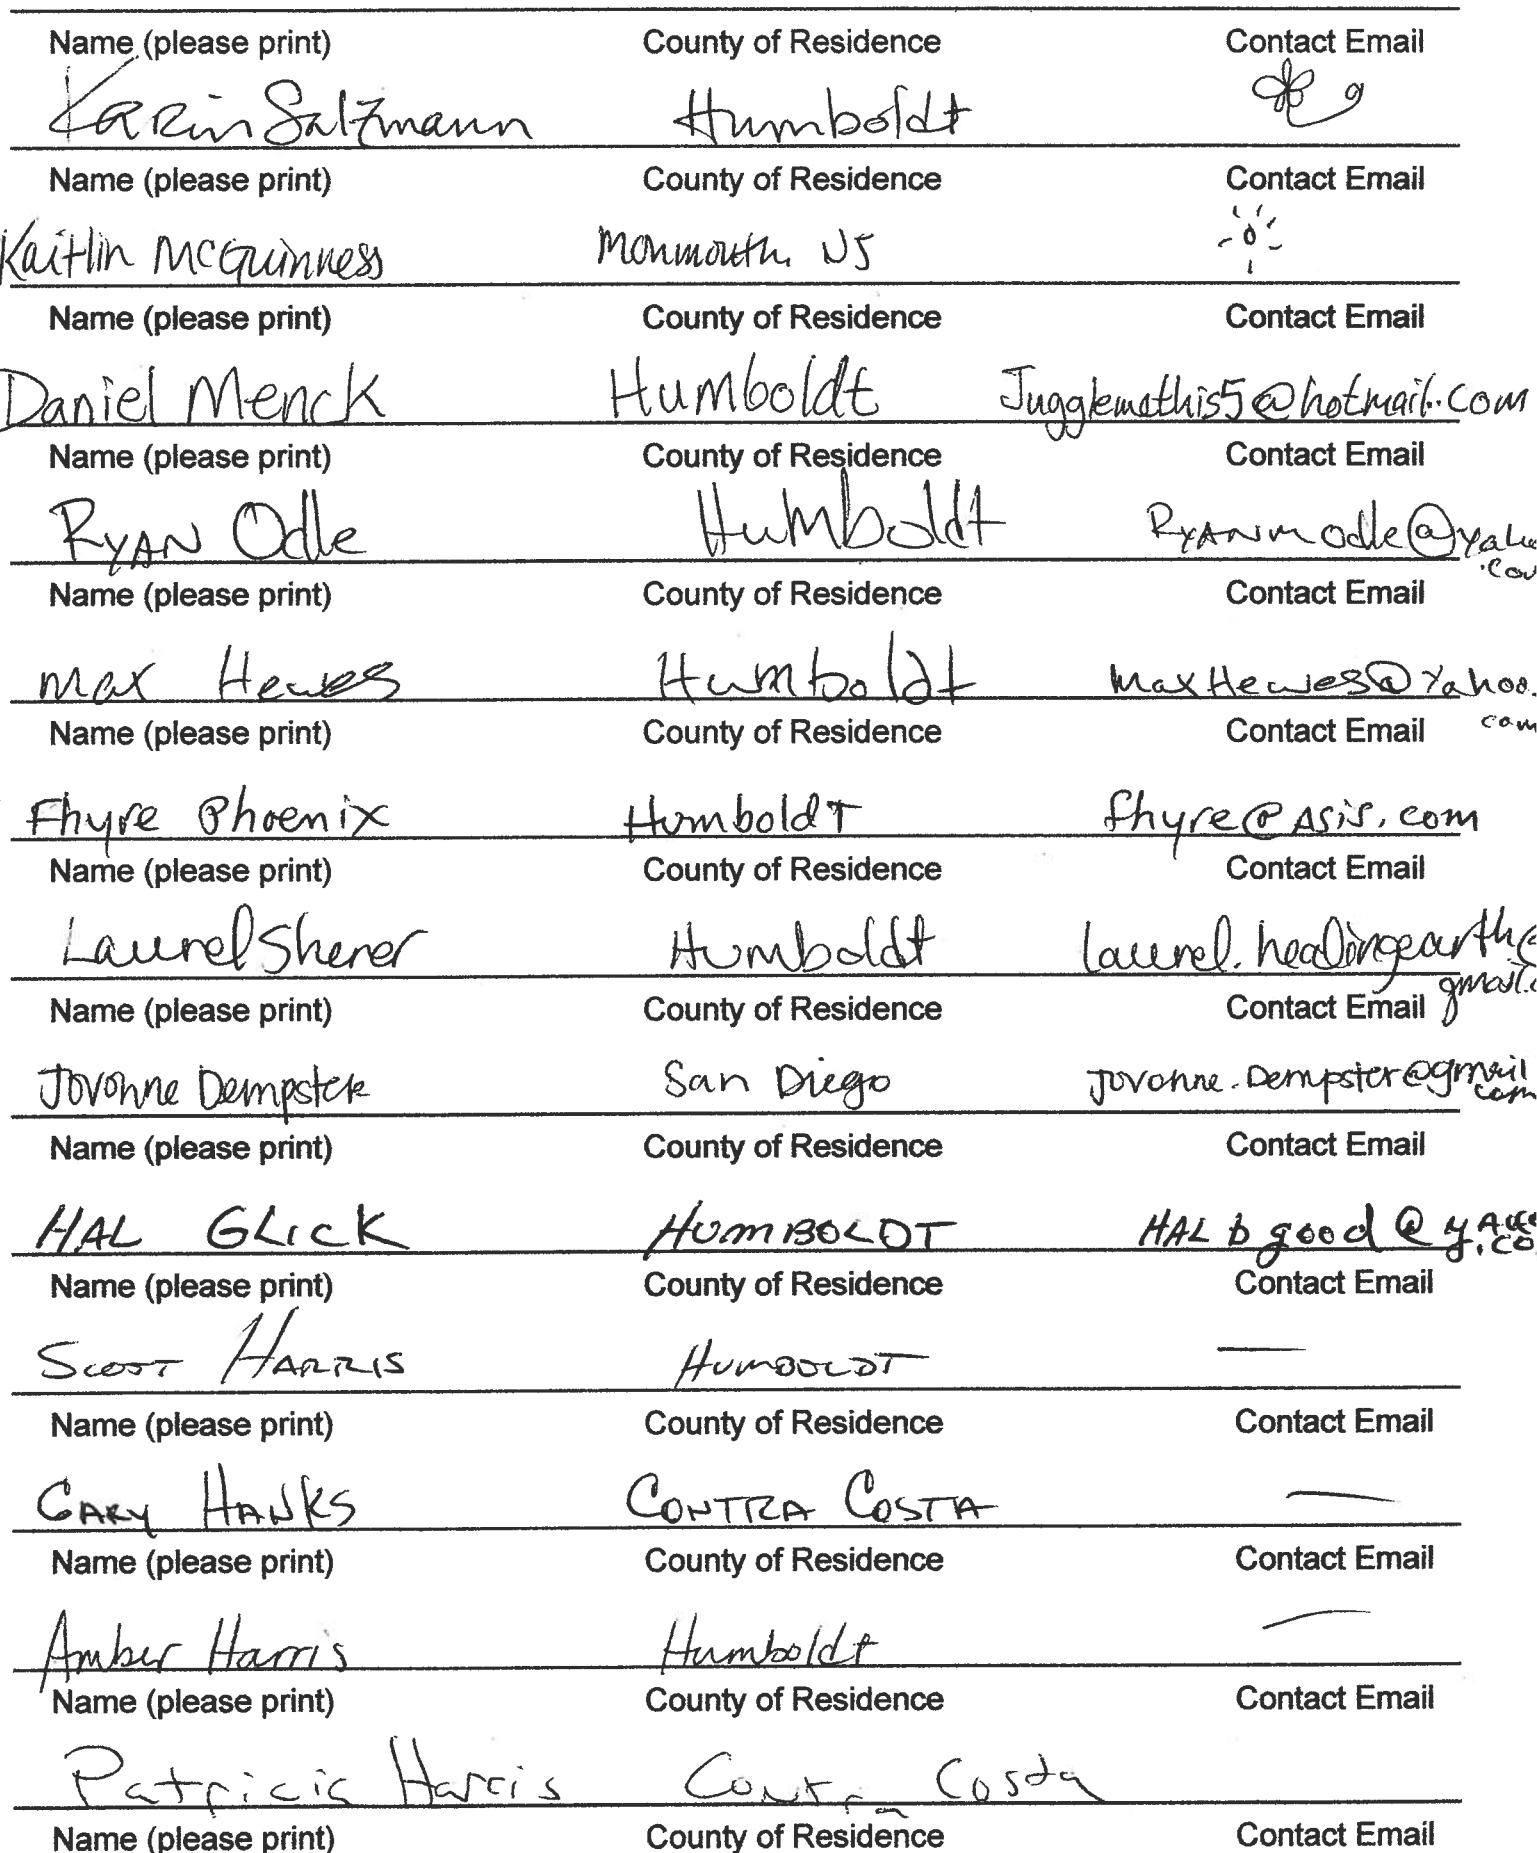 Name (please print) County of Residence Contact Email
Karin Salzmann Humboldt
Name (please print) County of Residence Contact Email
Kaitlin McGuinness Monmouth NJ
Name (please print) County of Residence Contact Email
Daniel Menck Humboldt Jugglemathis5@hotmail.com
Name (please print) County of Residence Contact Email
RYAN Odle Humboldt RYANmodle@yahoo
.com
Name (please print) County of Residence Contact Email
Max Hewes Humboldt MaxHewes@Yahoo.
com
Name (please print) County of Residence Contact Email
Fhyre Phoenix Humboldt fhyre@ASIS.com
Name (please print) County of Residence Contact Email
Laurel Sherer Humboldt laurel.healingearth@
gmail.c
Name (please print) County of Residence Contact Email
Jovonne Dempster San Diego Jovonne.Dempster@gmail
com
Name (please print) County of Residence Contact Email
HAL GLICK HUMBOLDT HALbgood@
.CO
Name (please print) County of Residence Contact Email
SCOTT HARRIS HUMBOLDT —
Name (please print) County of Residence Contact Email
GARY HANKS CONTRA COSTA —
Name (please print) County of Residence Contact Email
Amber Harris Humboldt —
Name (please print) County of Residence Contact Email
Patricia Harris Contra Costa
Name (please print) County of Residence Contact Email